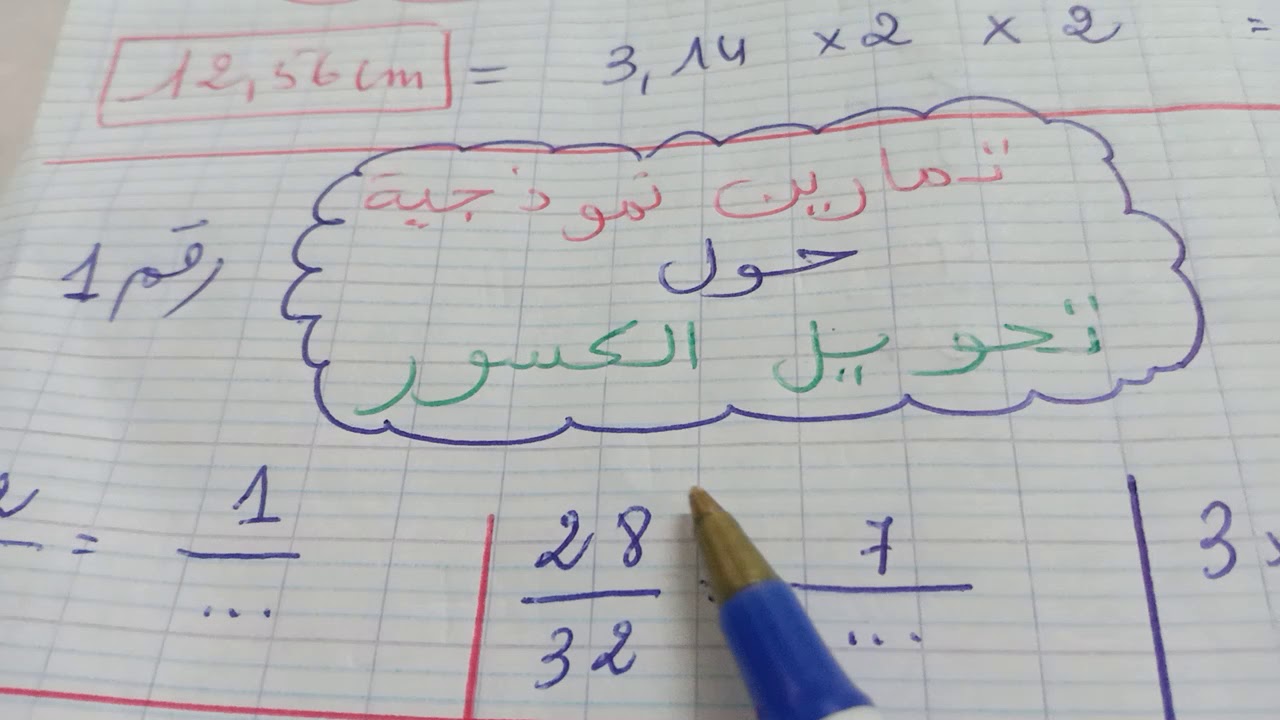 12,56 cm = 3,14 × 2 × 2 =
تمارين نموذجية
رقم 1
حول
تحويل الكسور
= 1/...
28/32 = 7/...
3